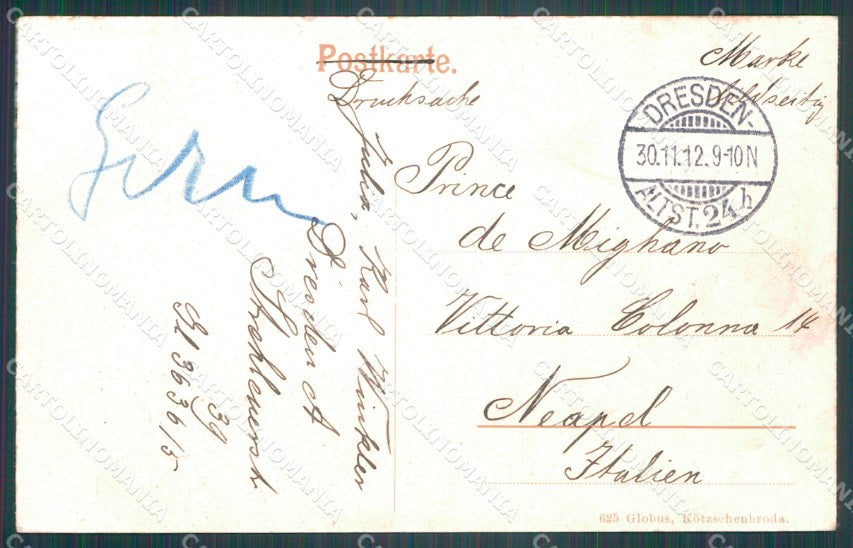 Postkarte.
Drucksache
Marke
DRESDEN-
30.11.12.9-10N
ALTST. 24 h
Prince
de Mighano
Vittoria Colonna 14
Neapel
Italien
Karl Winkler
Dresden A
39
625 Globus, Kötzschenbroda.
CARTOLINOMANIA